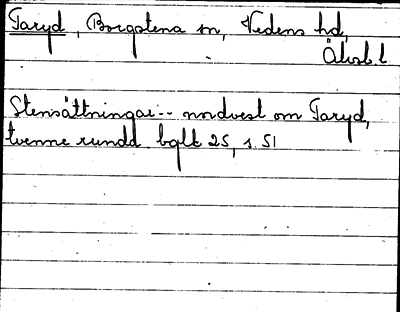 Taryd, Borgstena sn, Vedens hd,
Älvsb. l
Stensättningar -- nordvest om Taryd,
tvenne rundd. bglt 25, s. 51